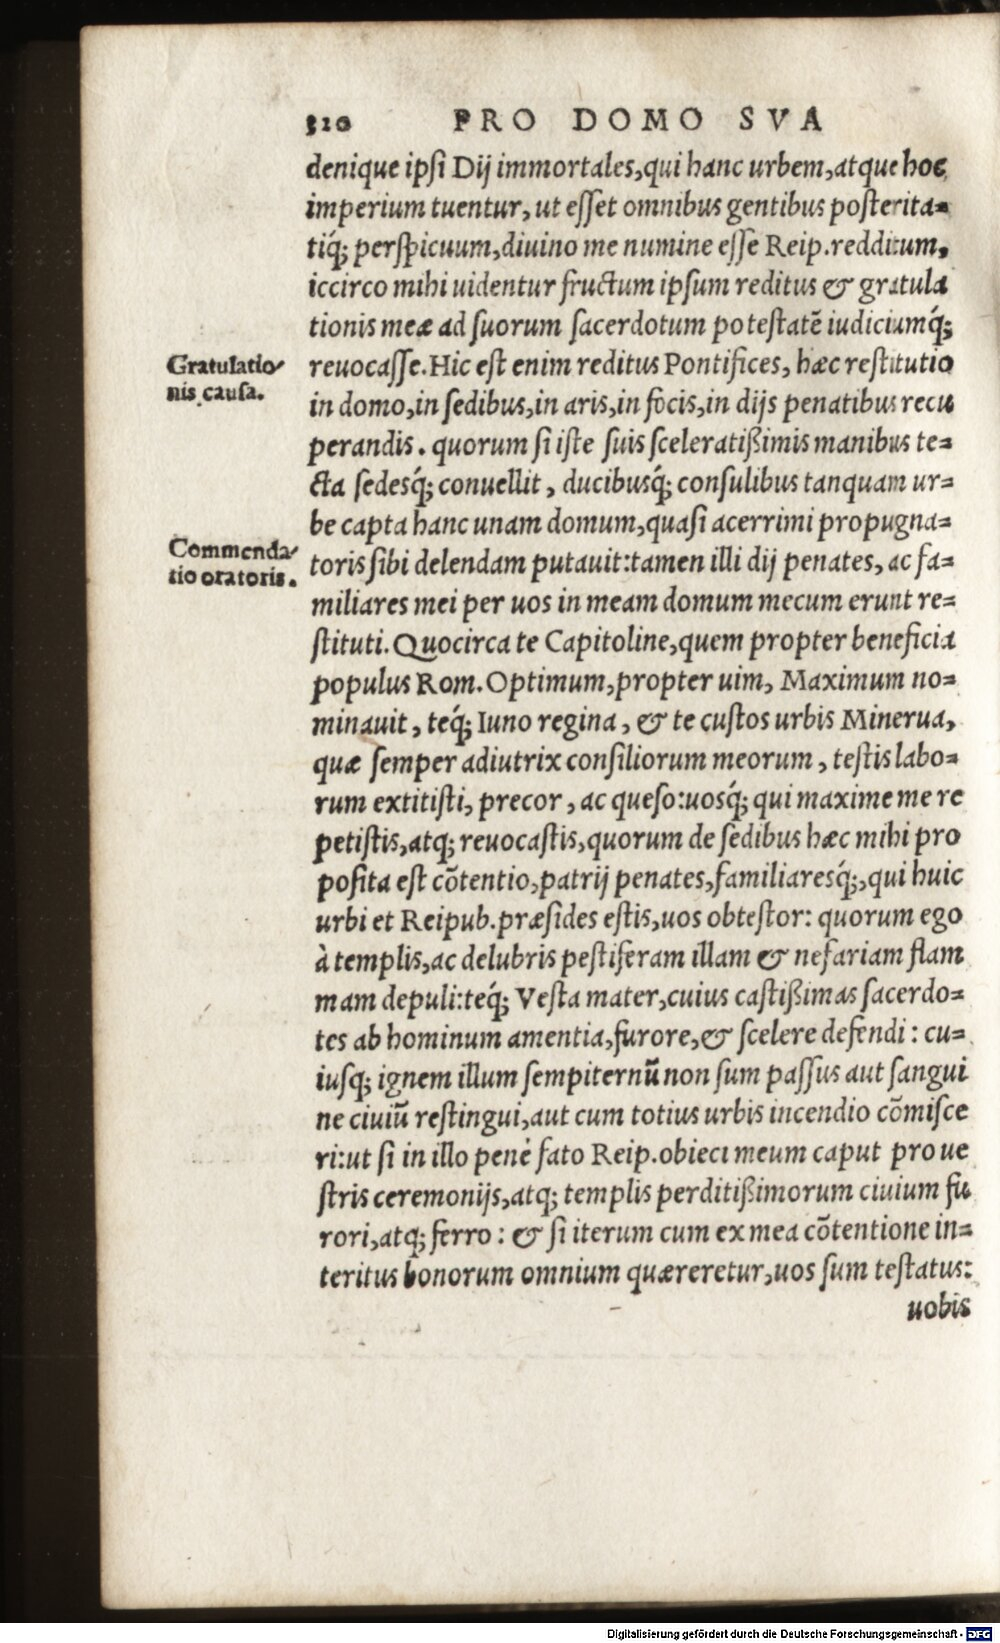 320 PRO DOMO SVA
denique ipſi Dij immortales,qui hanc urbem,atque hoc
imperium tuentur, ut eſſet omnibus gentibus poſterita=
tiq́; perſpicuum,diuino me numine eſſe Reip.redditum,
iccirco mihi uidentur fructum ipſum reditus & gratula
tionis meæ ad ſuorum ſacerdotum poteſtatē iudiciumq́;
Gratulatio
nis cauſa.
reuocaſſe.Hic eſt enim reditus Pontifices, hæc reſtitutio
in domo,in ſedibus,in aris,in focis,in dijs penatibus recu
perandis. quorum ſi iſte ſuis ſceleratißimis manibus te=
cta ſedesq́; conuellit, ducibusq́; conſulibus tanquam ur=
be capta hanc unam domum,quaſi acerrimi propugna=
Commenda
tio oratoris.
toris ſibi delendam putauit:tamen illi dij penates, ac fa=
miliares mei per uos in meam domum mecum erunt re=
ſtituti. Quocirca te Capitoline,quem propter beneficia
populus Rom.Optimum,propter uim, Maximum no=
minauit, teq́; Iuno regina, & te cuſtos urbis Minerua,
quæ ſemper adiutrix conſiliorum meorum, teſtis labo=
rum extitiſti, precor, ac queſo:uosq́; qui maxime me re
petiſtis,atq; reuocaſtis,quorum de ſedibus hæc mihi pro
poſita eſt cōtentio,patrij penates,familiaresq́;,qui huic
urbi et Reipub.præſides eſtis,uos obteſtor: quorum ego
à templis,ac delubris peſtiferam illam & nefariam flam
mam depuli:teq́; Veſta mater,cuius caſtißimas ſacerdo=
tes ab hominum amentia,furore,& ſcelere defendi: cu=
iusq; ignem illum ſempiternū non ſum paſſus aut ſangui
ne ciuiū reſtingui,aut cum totius urbis incendio cōmiſce
ri:ut ſi in illo penè fato Reip.obieci meum caput pro ue
ſtris ceremonijs,atq; templis perditißimorum ciuium fu
rori,atq; ferro: & ſi iterum cum ex mea cōtentione in=
teritus bonorum omnium quæreretur,uos ſum teſtatus:
uobis
Digitalisierung gefördert durch die Deutsche Forschungsgemeinschaft - DFG